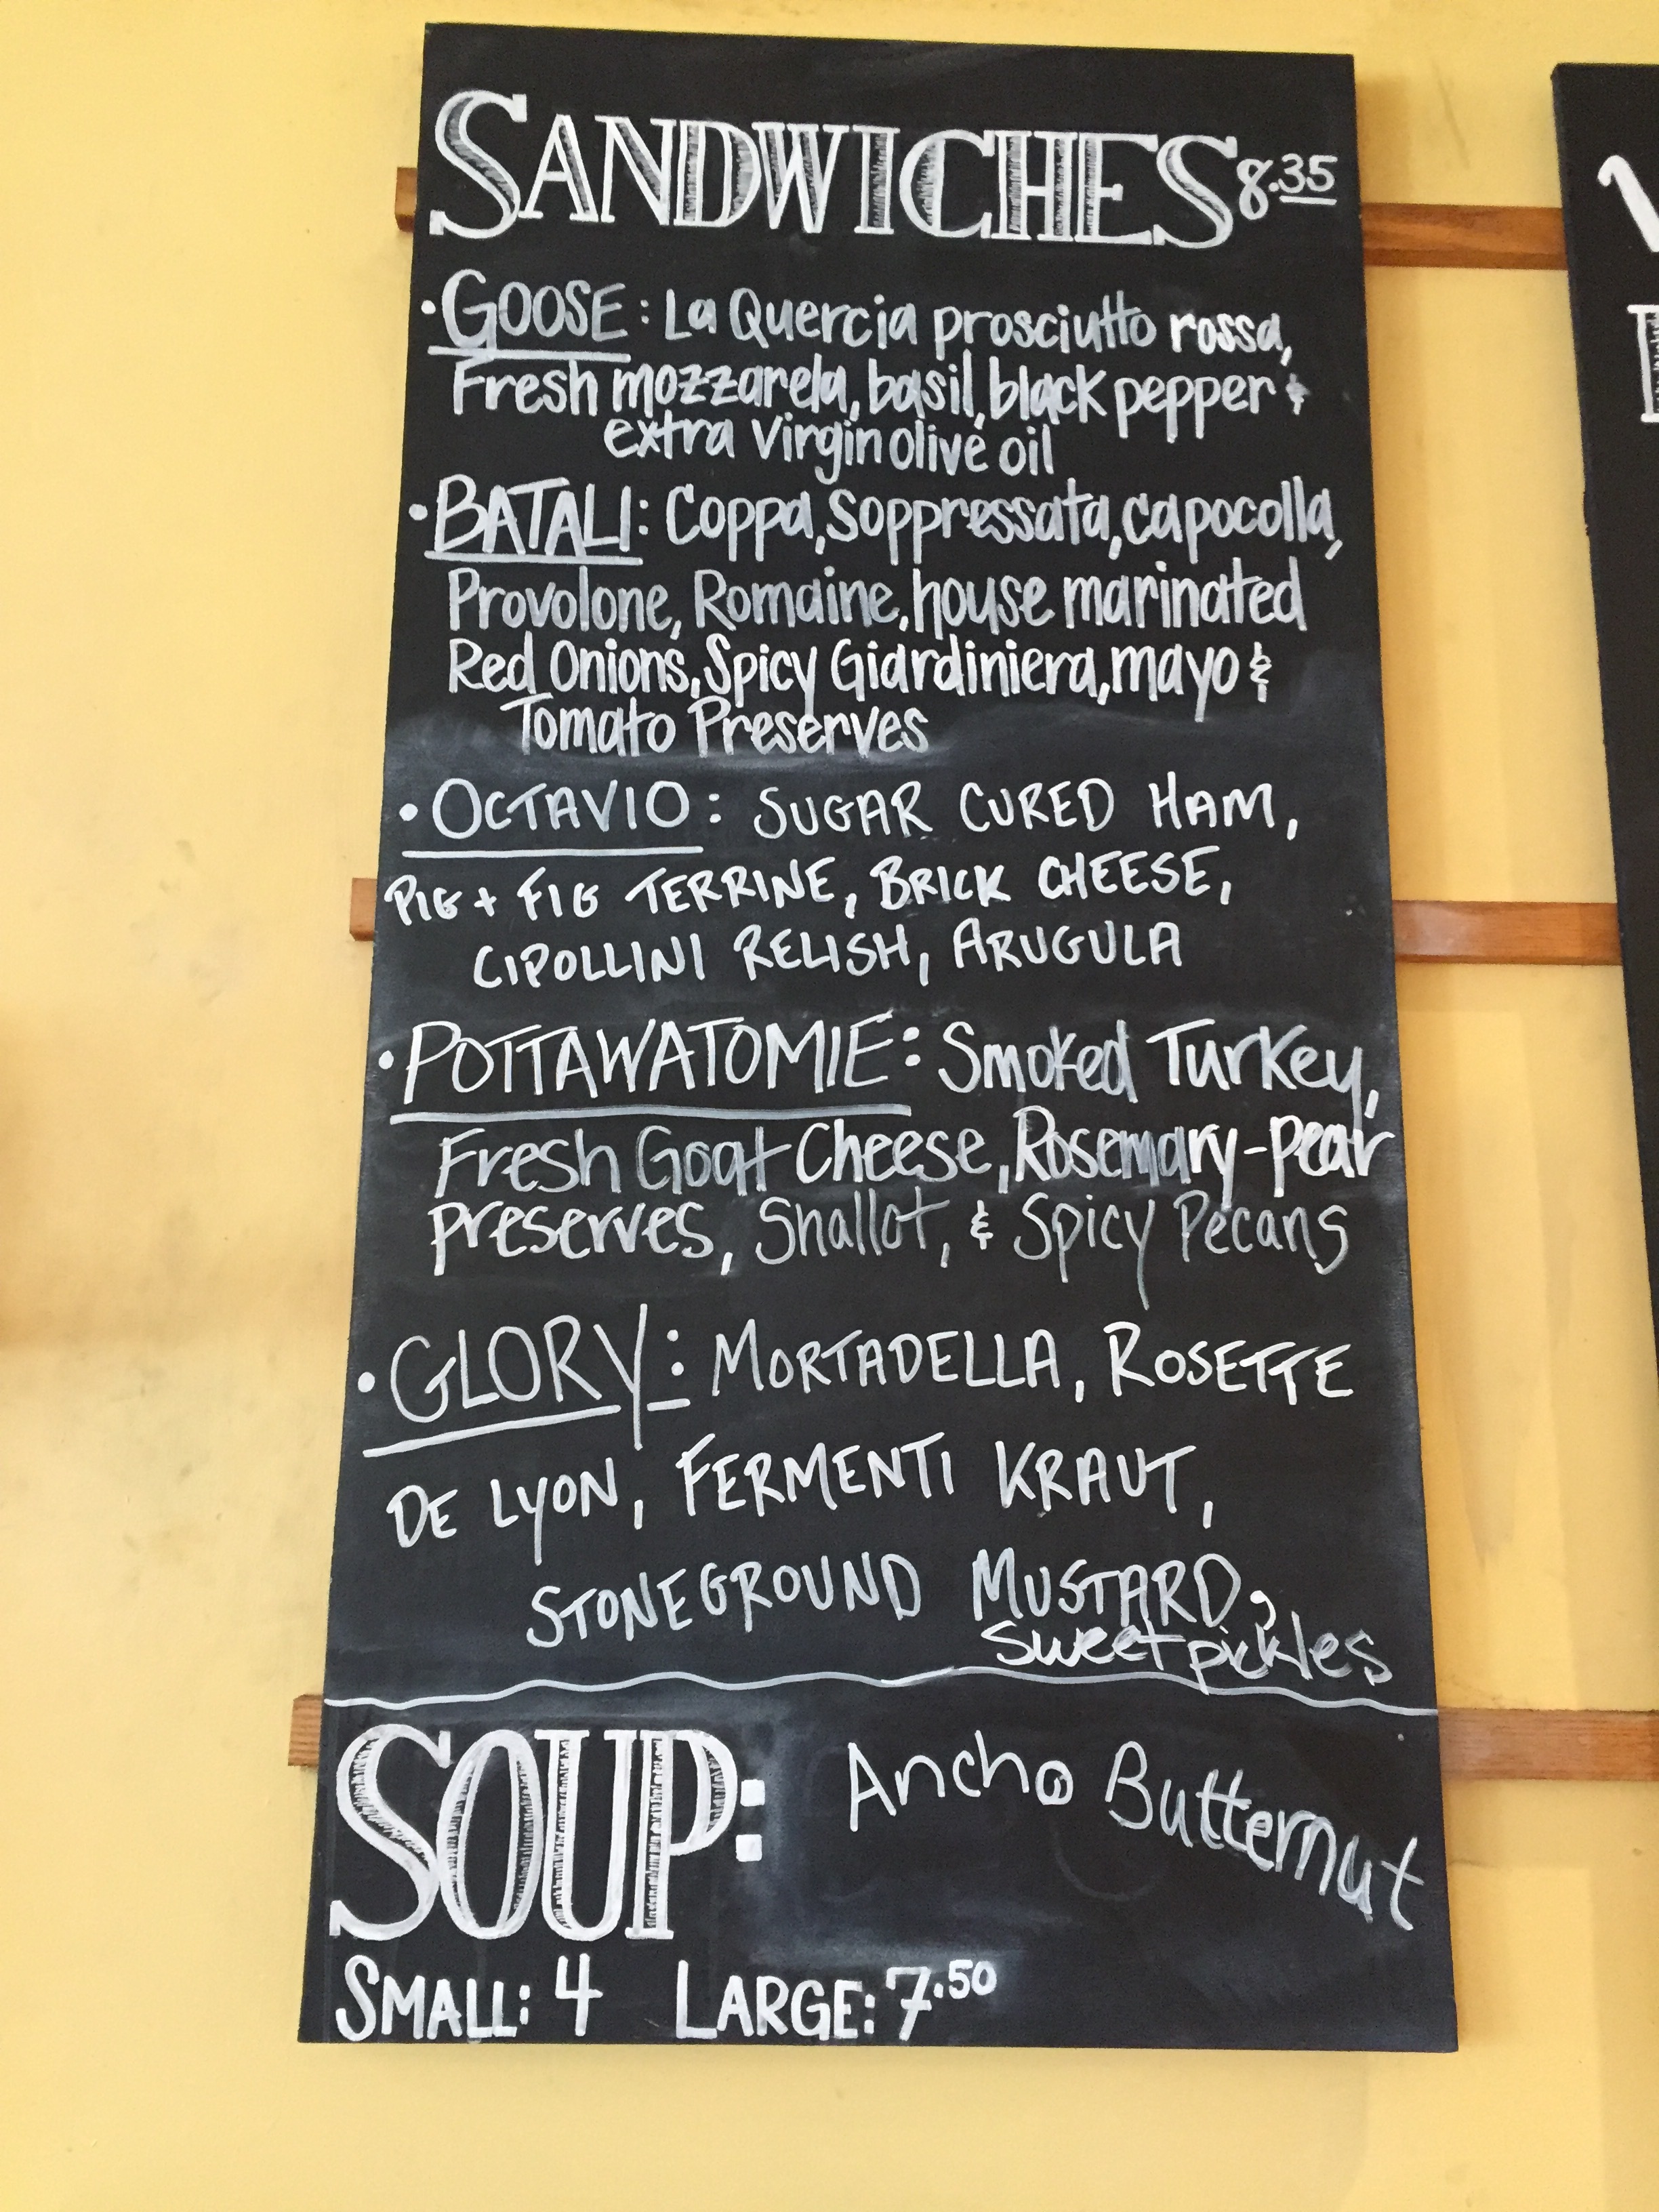 SANDWICHES 8.35
• GOOSE: La Quercia prosciutto rossa,
Fresh mozzarela, basil, black pepper &
extra virgin olive oil
• BATALI: Coppa, Soppressata, capocolla,
Provolone, Romaine, house marinated
Red Onions, Spicy Giardiniera, mayo &
Tomato Preserves
• OCTAVIO: SUGAR CURED HAM,
PIG + FIG TERRINE, BRICK CHEESE,
CIPOLLINI RELISH, ARUGULA
• POTTAWATOMIE: Smoked Turkey,
Fresh Goat Cheese, Rosemary-pear
preserves, Shallot, & Spicy Pecans
• GLORY: MORTADELLA, ROSETTE
DE LYON, FERMENTI KRAUT,
STONEGROUND MUSTARD,
sweet pickles
SOUP: Ancho Butternut
SMALL: 4 LARGE: 7.50